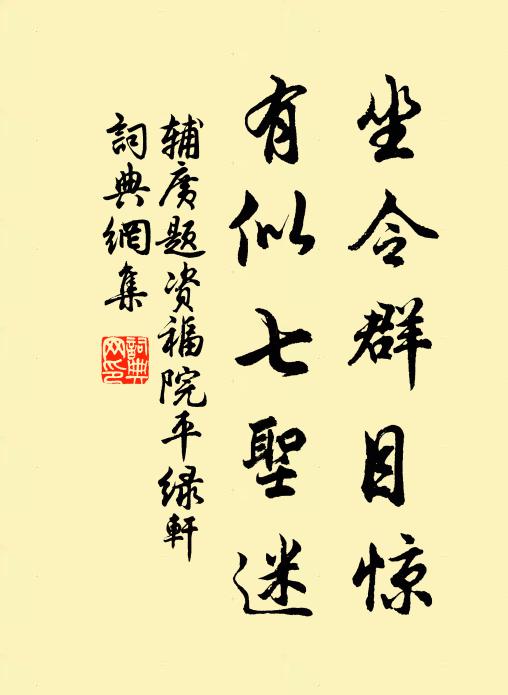 坐令群目惊
有似七聖迷
辅廣题资福院平绿軒
詞典網集
詞典
网印